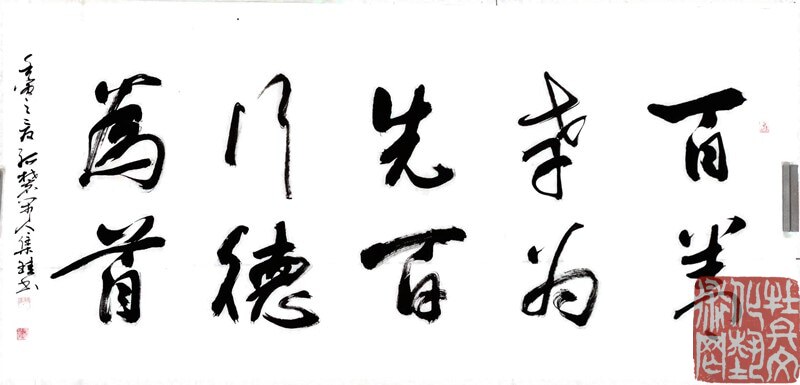 百善
孝为
先百
行德
為首
壬寅之夏